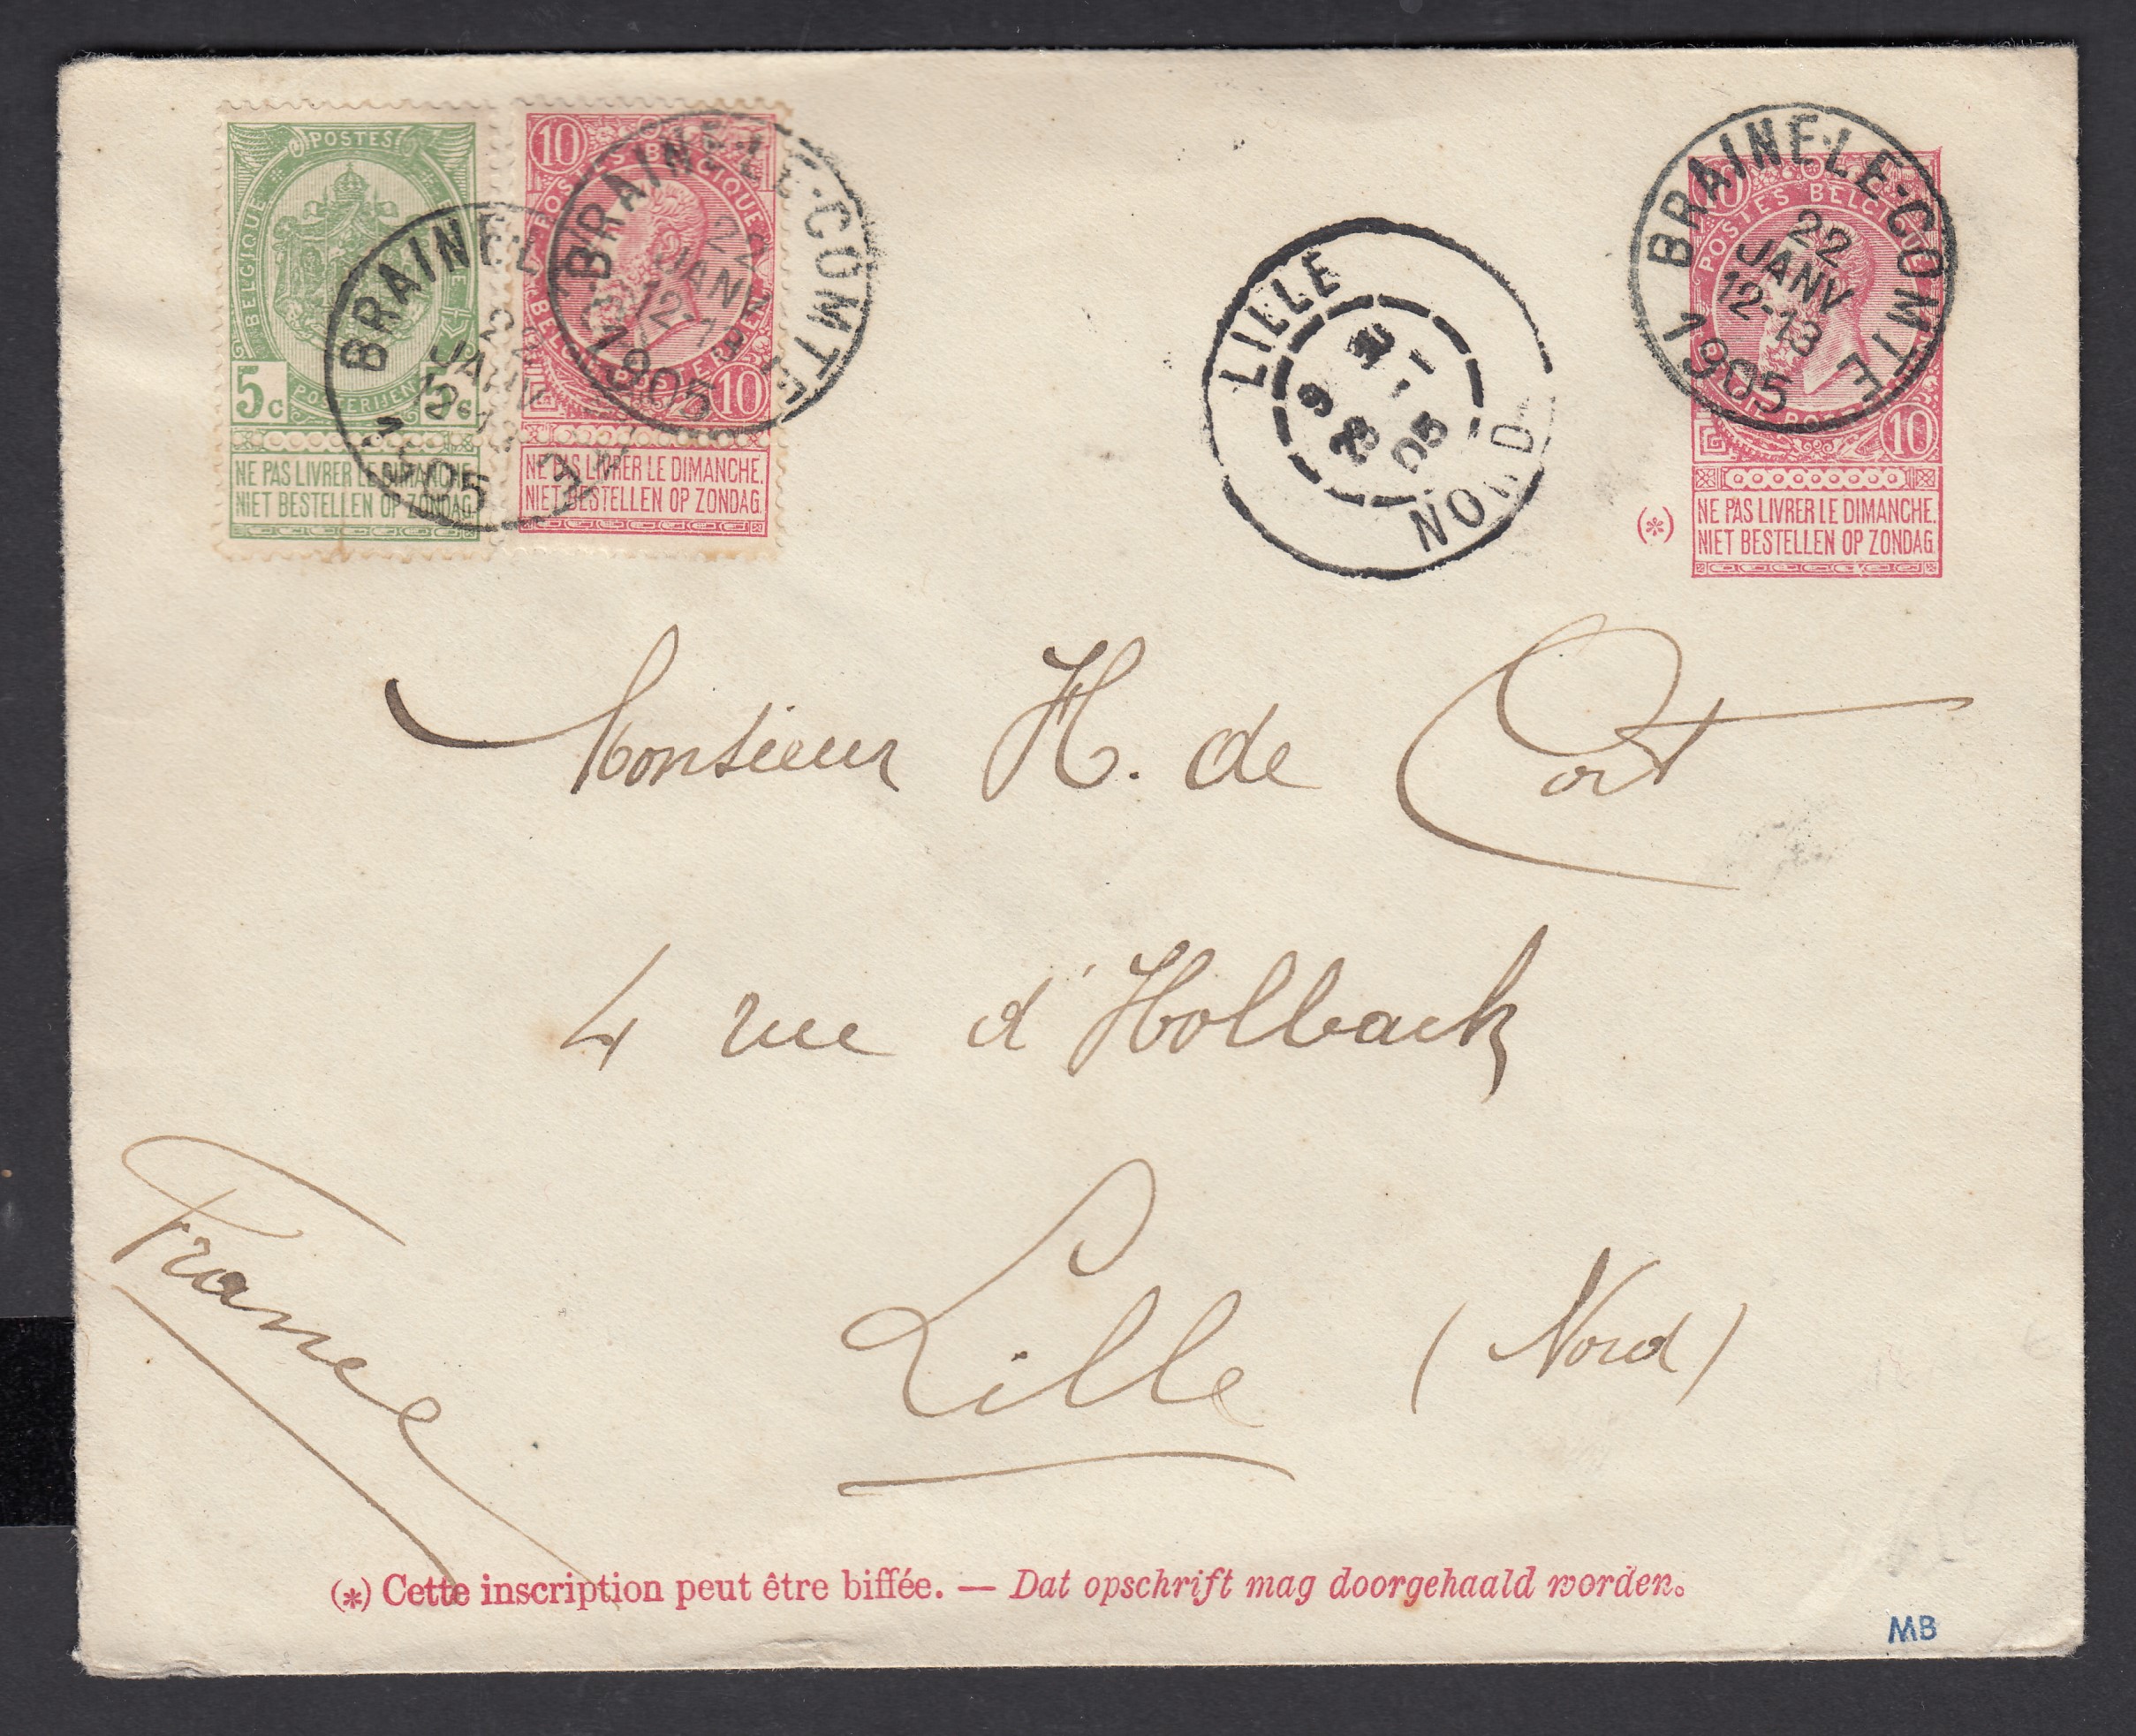 POSTES
BELGIQUE
BELGIË
5c 5c
POSTERIJEN
NE PAS LIVRER LE DIMANCHE.
NIET BESTELLEN OP ZONDAG.
10
POSTES BELGIQUE
10
NE PAS LIVRER LE DIMANCHE.
NIET BESTELLEN OP ZONDAG.
BRAINE-LE-COMTE
22
JANV
1905
LILLE
9
23
05
NORD
BRAINE-LE-COMTE
22
JANV
12-13
1905
10
POSTES BELGIQUE
10
(*) NE PAS LIVRER LE DIMANCHE.
NIET BESTELLEN OP ZONDAG.
Monsieur H. de Cort
4 rue d'Holback
France
Lille (Nord)
(*) Cette inscription peut être biffée. — Dat opschrift mag doorgehaald worden.
MB